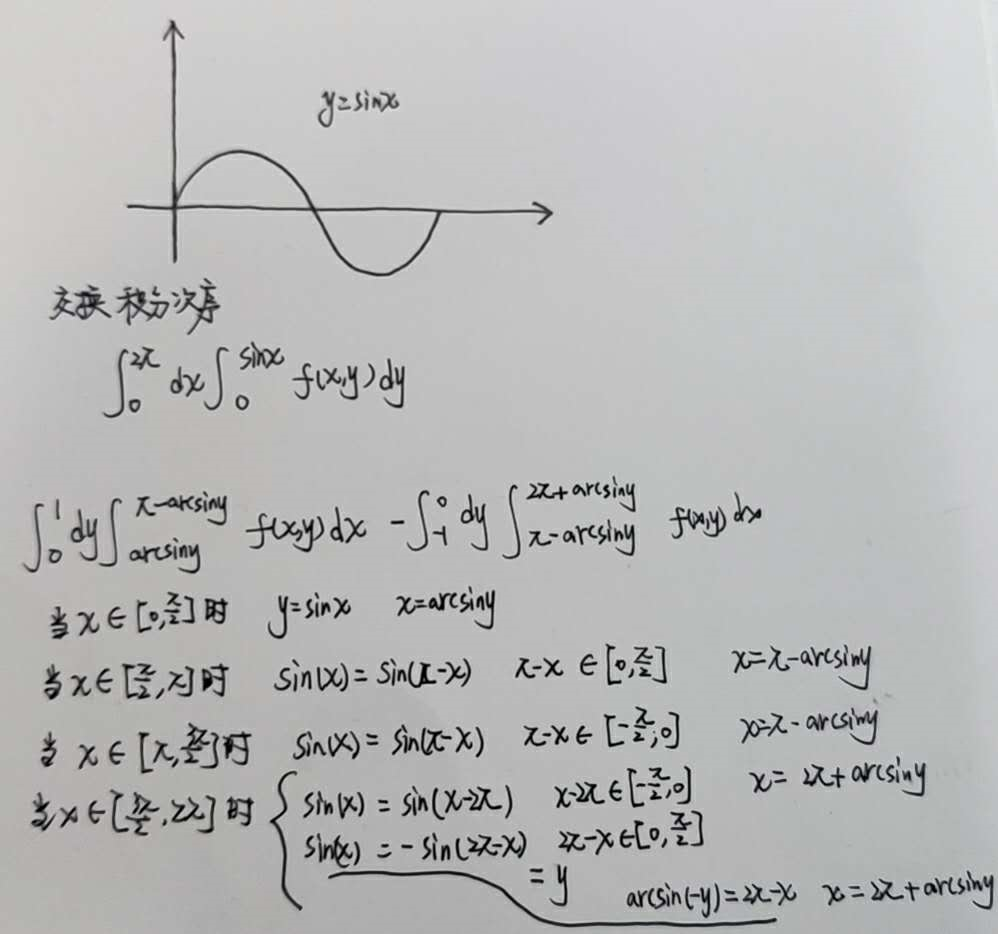 y=sinx
交换积分次序
∫₀^{2π} dx ∫₀^{sinx} f(x,y)dy
∫₀^{1} dy ∫_{arcsiny}^{π-arcsiny} f(x,y)dx - ∫_{-1}^{0} dy ∫_{π-arcsiny}^{2π+arcsiny} f(x,y)dx
当 x∈[0,π/2]时 y=sinx x=arcsiny
当 x∈[π/2,π]时 sin(x)=sin(π-x) π-x∈[0,π/2] x=π-arcsiny
当 x∈[π,3π/2]时 sin(x)=sin(π-x) π-x∈[-π/2,0] x=π-arcsiny
当 x∈[3π/2,2π]时 { sin(x)=sin(x-2π) x-2π∈[-π/2,0] x=2π+arcsiny
sin(x)=-sin(2π-x) 2π-x∈[0,π/2]
=y arcsin(-y)=2π-x x=2π+arcsiny